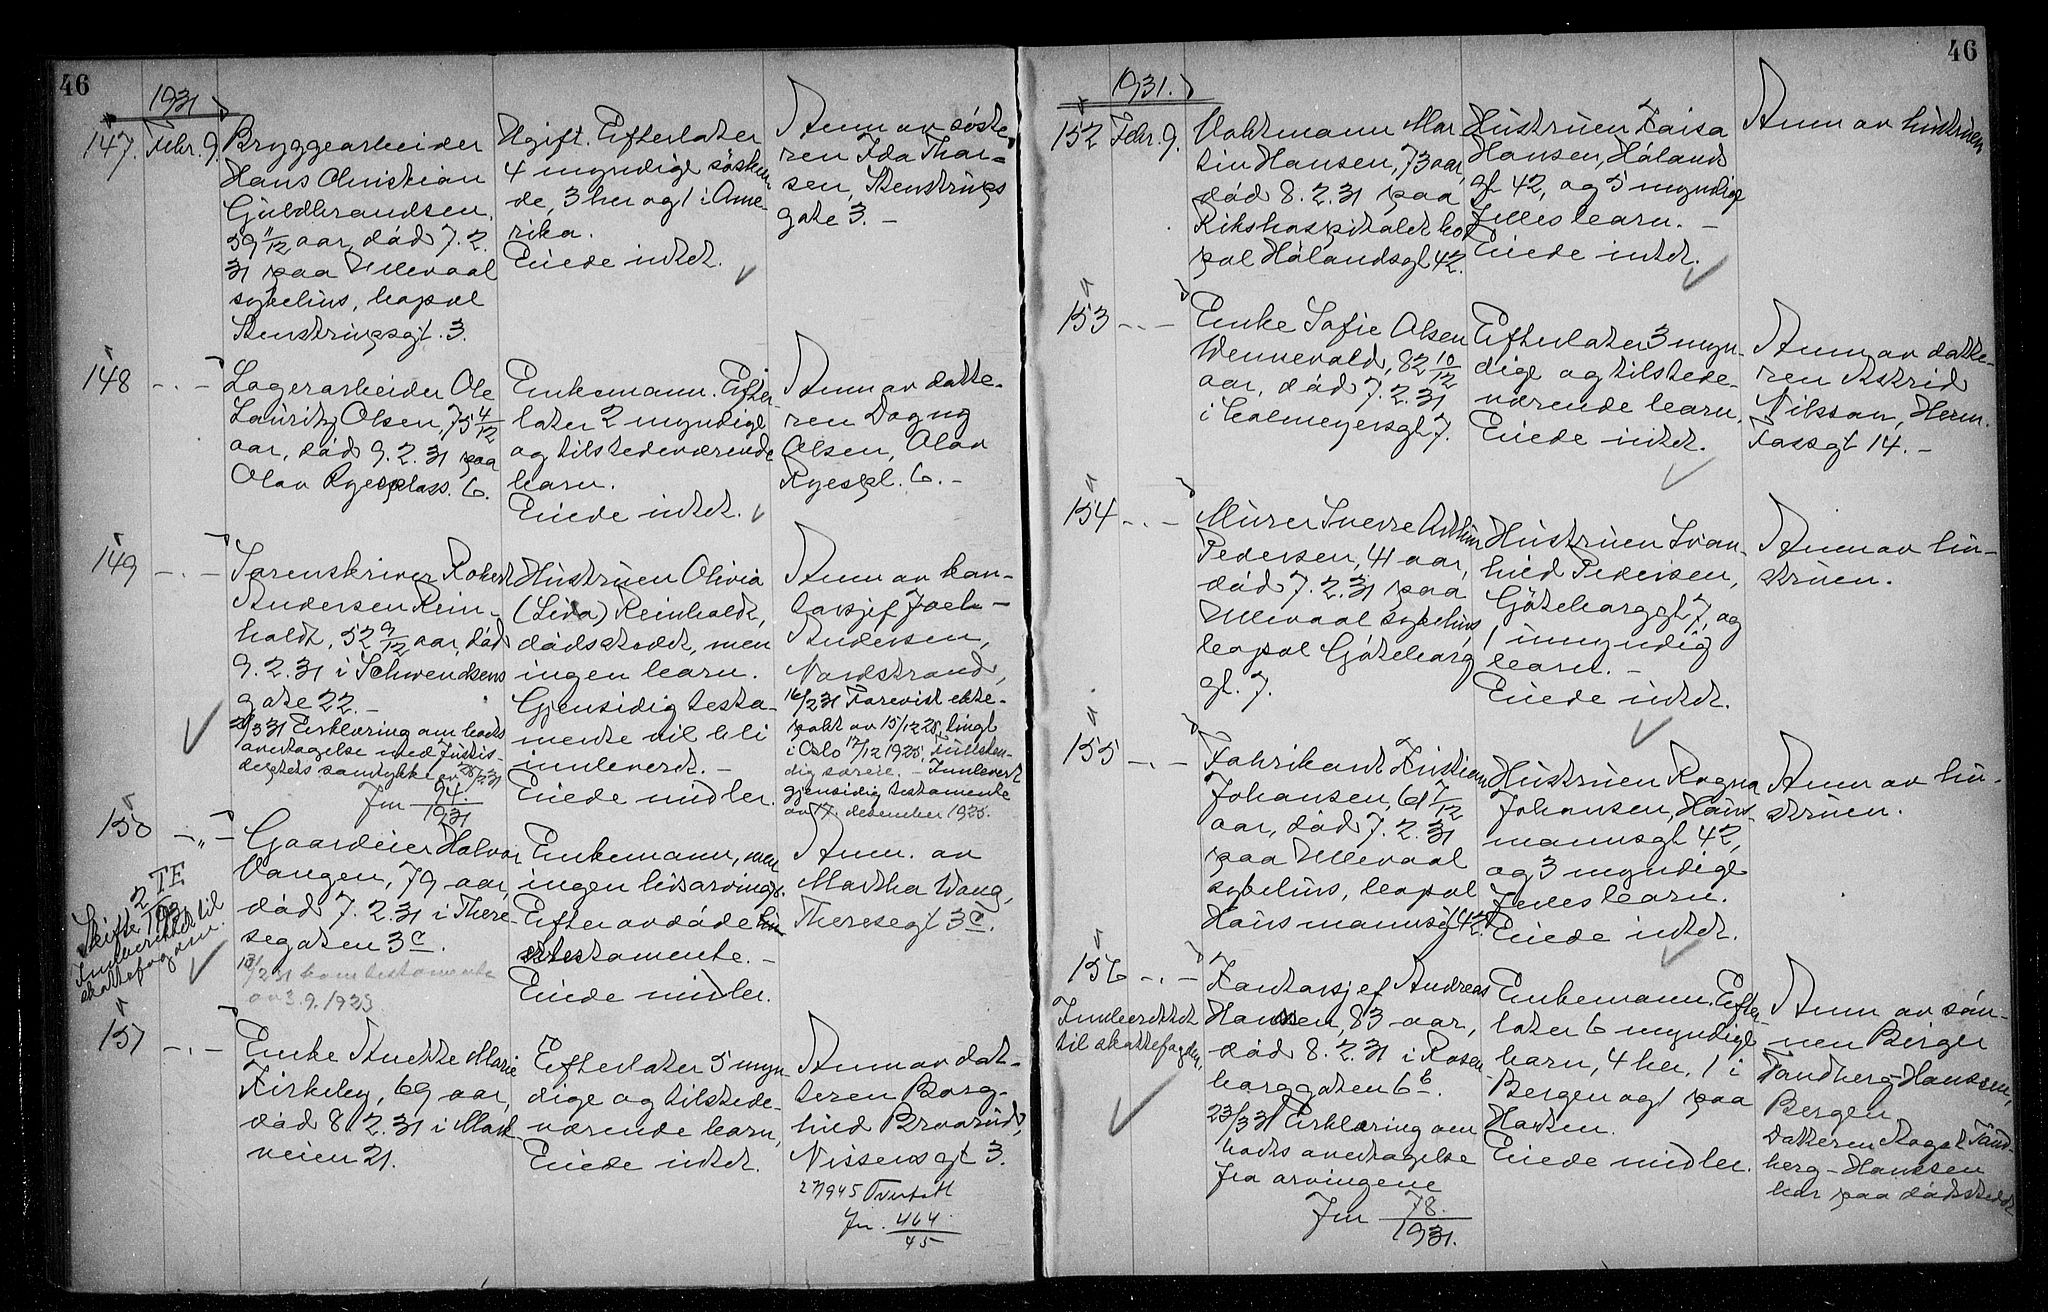 46
1931
147. Febr. 9.
Bryggearbeider
Hans Christian
Guldbrandsen,
59 11/12 aar, död 7.2.
31 paa Ullevaal
sykehus, bopæl
Stenstrupsgt. 3.
Ugift. Efterlater
4 myndige sösken-
de, 3 her og 1 i Ame-
rika.
Eiede intet.
Anm. av söste-
ren Ida Thor-
sen, Stenstrups
gate 3. –
148 -.-
Lagerarbeider Ole
Lauritz Olsen, 75 4/12
aar, död 9.2.31 paa
Olav Ryesplass. 6.
Enkemann. Efter-
later 2 myndige
og tilstedeværende
barn.
Eiede intet.
Anm av datte-
ren Dagny
Olsen, Olav
Ryespl. 6. –
149 -.-
Sorenskriver Robert
Andersen Rein-
holdt, 52 9/12 aar, död
9.2.31 i Schwenckens
gate 22. –
21/3 31 Erklæring om bods
overtagelse med Justis-
dep'tets samtykke av 28/2 31
Jnr 94./1931
Hustruen Olivia
(Liva) Reinholdt,
dödsstedet, men
ingen barn.
Gjensidig testa-
mente vil bli
innlevert. –
Eiede midler.
Anm av kon-
torsjef Joch-
Andersen,
Nordstrand,
16/2 31 Forevist ekte-
pakt av 15/12 25, tingl.
i Oslo 17/12 1925. Fullsten-
dig særeie. – Innlevert
gjensidig testamente
av 17. desember 1925.
150 -„-
Gaardeier Halvor
Vangen, 79 aar,
död 7.2.31 i There-
segaten 3c
13/2 31 kom testamente
av 3.9.1923
Skifte 2 TE/1931
Innberettet til
skattefogden.
Enkemann, men
ingen livsarving.
Efter avdöde hu-
testamente. –
Eiede midler.
Anm. av
Martha Wang,
Theresegt 3c.
151 -.-
Enke Anette Marie
Kirkeby, 69 aar,
död 8.2.31 i Mark-
veien 21.
Efterlater 5 myn-
dige og tilstede-
værende barn,
Eiede intet.
Anm av dat-
teren Borg-
hild Braarud,
Nissens gt 3.
Jnr. 464/45
46
1931.
152 Febr. 9.
Vaktmann Mar
tin Hansen, 73 aar,
död 8.2.31 paa
Rikshospitalet bo
pæl Hölandsgt 42.
Hustruen Kaisa
Hansen, Hölands
gt 42, og 5 myndige
felles barn. –
Eiede intet.
Anm av hustruen
153 -.-
Enke Sofie Olsen
Wennevold, 82 10/12
aar, död 7.2.31
i Calmeyersgt 7.
Efterlater 3 myn-
dige og tilstede-
værende barn,
Eiede intet.
Anm av datte-
ren Astrid
Nilsson, Herm.
Fossgt 14. –
154 -.-
Murer Sverre Arthur
Pedersen, 41 aar,
död 7.2.31 paa
Ullevaal sykehus,
bopæl Göteborg
gt. 7.
Hustruen Svan-
hild Pedersen,
Göteborggt 7, og
1 umyndig
barn. –
Eiede intet.
Anm av hu-
struen.
155 -.-
Fabrikant Kristian
Johansen, 61 7/12
aar, död 7.2.31
paa Ullevaal
sykehus, bopæl
Hausmannsgt 42.
Hustruen Ragna
Johansen, Haus-
mannsgt 42,
og 3 myndige
felles barn.
Eiede intet.
Anm av hu-
struen.
156 -.-
Kontorsjef Andreas
Hanssen, 83 aar,
död 8.2.31 i Rosen-
borggaten 6b.
23/3 31 Erklæring om
bods overtagelse
fra arvingene
Jnr 78./1931.
Innberettet
til skattefogden.
Enkemann. Efter-
later 6 myndige
barn, 4 her, 1 i
Bergen og 1 paa
Hadsen.
Eiede midler.
Anm av sön-
nen Birger
Tandberg-Hanssen,
Bergen
Datteren Aagot Tand-
berg-Hanssen
bor paa dödsstedet